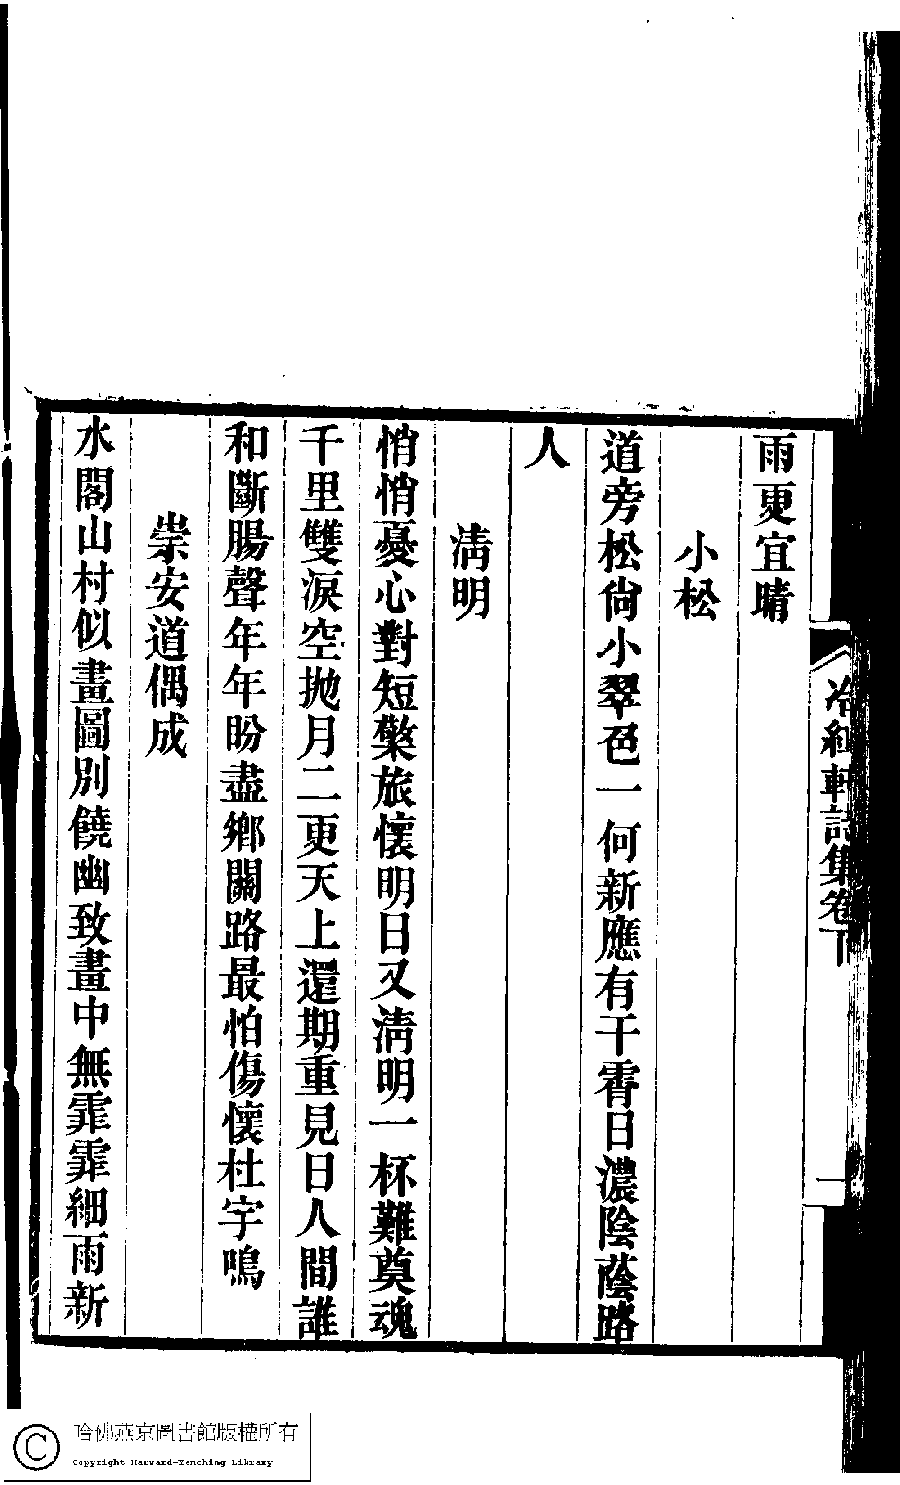 雨更宜晴
小松
道旁松尙小翠色一何新應有干霄日濃陰蔭路
人
淸明
悄悄憂心對短檠旅懷明日又淸明一杯難奠魂
千里雙淚空拋月二更天上還期重見日人間誰
和斷腸聲年年盼盡鄉關路最怕傷懷杜宇鳴
崇安道偶成
水閣山村似畫圖別饒幽致畫中無霏霏細雨新
冷紅軒詩集卷下
一
哈佛燕京圖書館版權所有
Copyright Harvard-Yenching Library